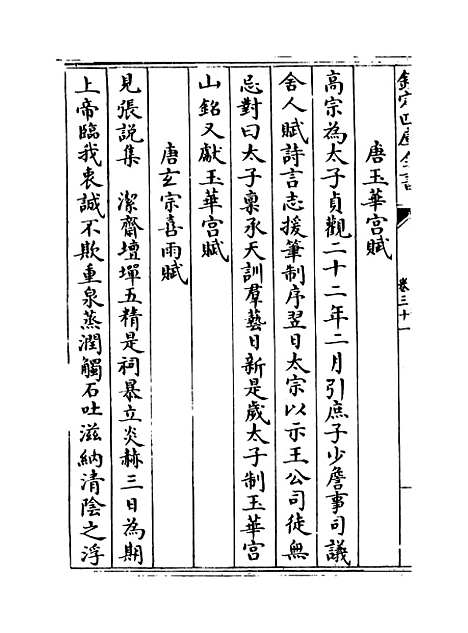 欽定四庫全書
卷三十一
唐玉華宫賦
高宗為太子貞觀二十二年二月引庶子少詹事司議
舍人賦詩言志援筆制序翌日太宗以示王公司徒無
忌對曰太子稟承天訓羣藝日新是歲太子制玉華宫
山銘又獻玉華宫賦
唐玄宗喜雨賦
見張説集 潔齋壇墠五精是祠暴立炎赫三日為期
上帝臨我衷誠不欺重泉蒸潤觸石吐滋納清陰之浮